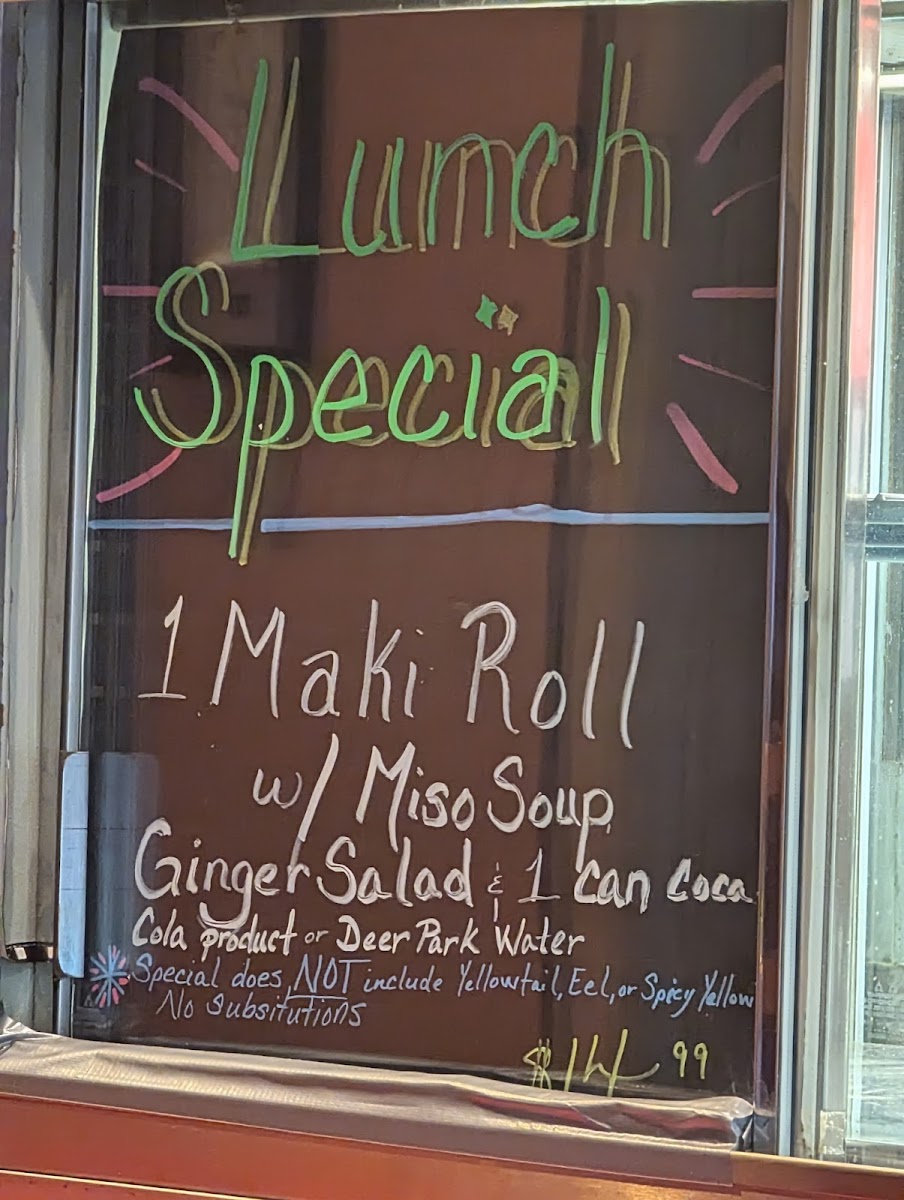 Lunch
Special
1 Maki Roll
w/ Miso Soup
Ginger Salad & 1 can Coca
Cola product or Deer Park Water
Special does NOT include Yellowtail, Eel, or Spicy Yellow
No Subsitutions
99